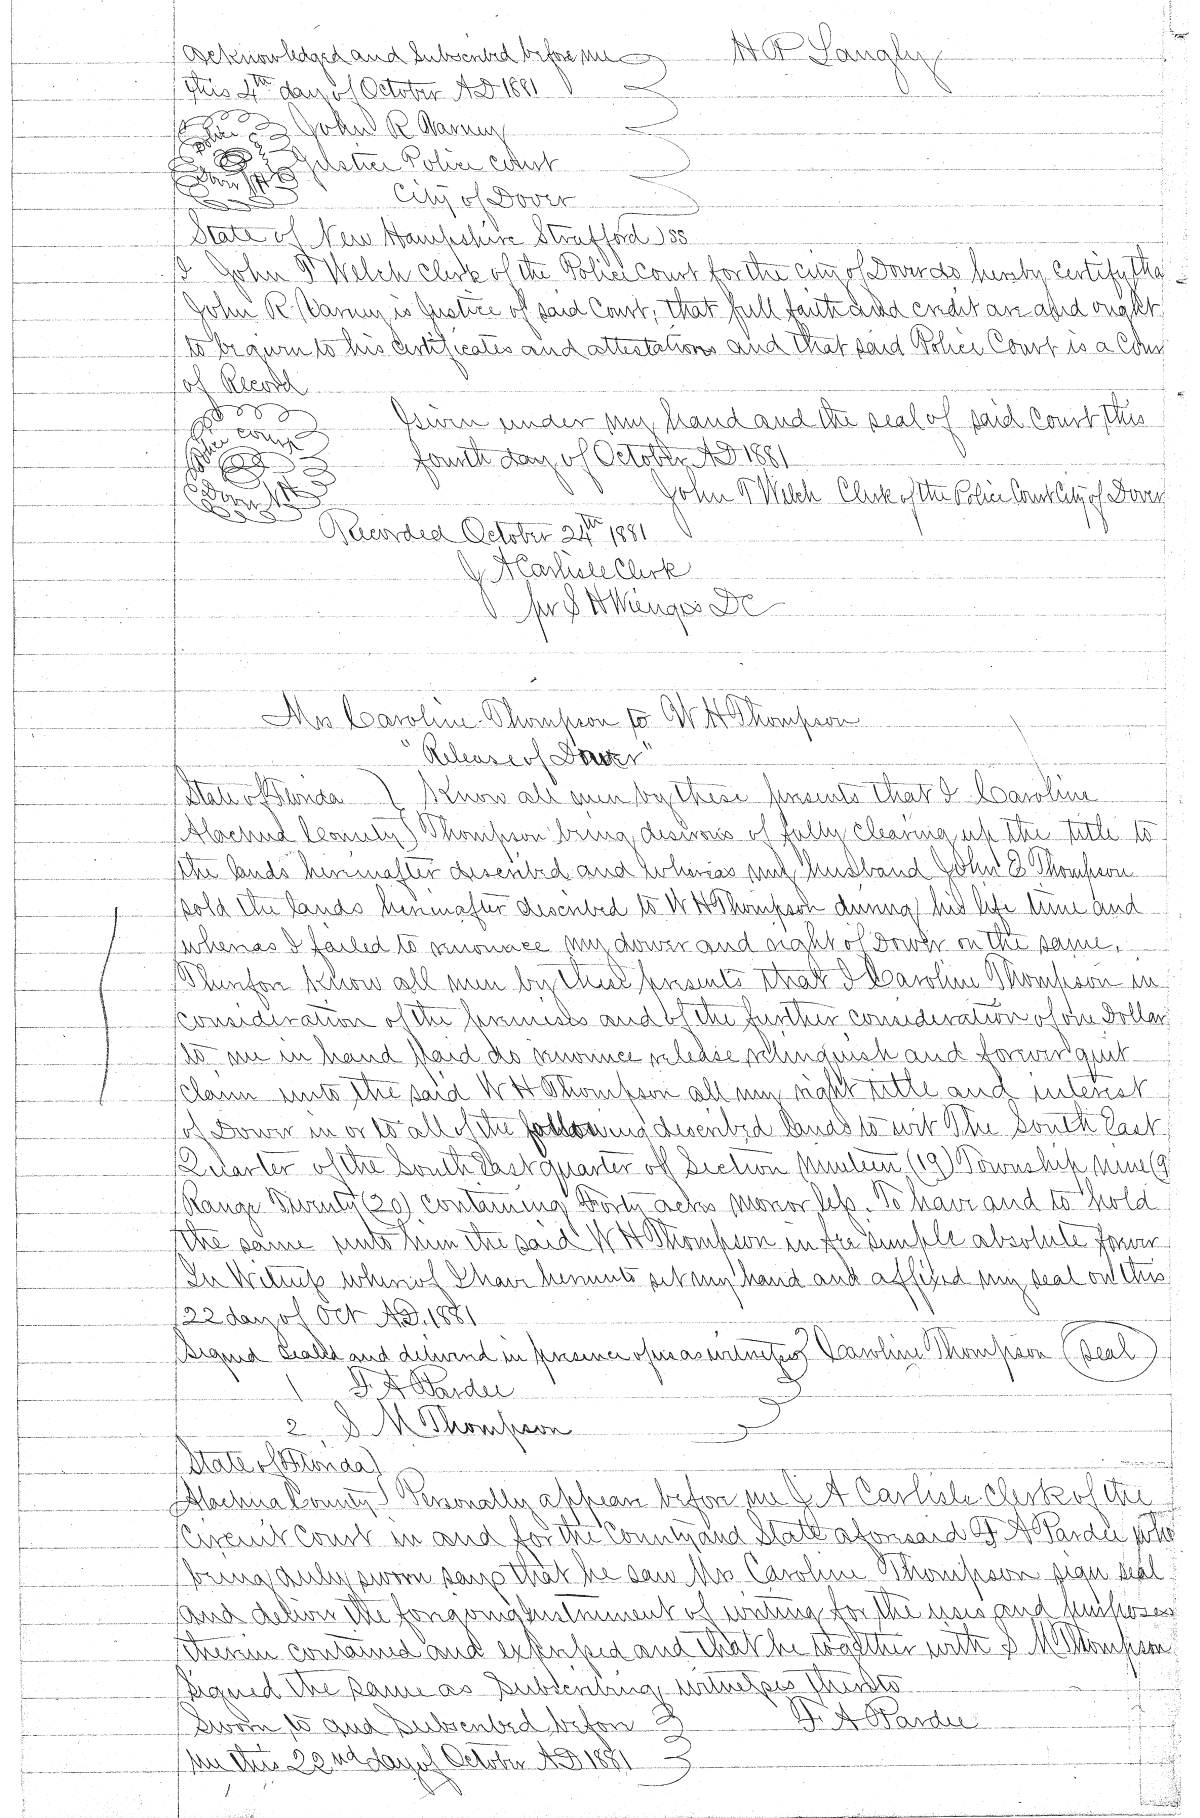 Acknowledged and Subscribed before me H P Langly
this 4th day of October AD 1881
John R Varney
Police Court Dover NH
Justice Police Court
City of Dover
State of New Hampshire Strafford) SS
I John T Welch Clerk of the Police Court for the city of Dover do hereby certify tha
John R Varney is Justice of said Court, that full faith and credit are and ought
to be given to his certificates and attestations and that said Police Court is a Cour
of Record
Given under my hand and the seal of said Court this
Police Court Dover NH
fourth day of October AD 1881
John T Welch Clerk of the Police Court City of Dover
Recorded October 24th 1881
J A Carlisle Clerk
pr S H Wienges DC
Mrs Caroline Thompson to W H Thompson
"Release of Dower"
State of Florida } Know all men by these presents that I Caroline
Alachua County } Thompson being desirous of fully clearing up the title to
the lands hereinafter described and whereas my husband John E Thompson
sold the lands hereinafter described to W H Thompson during his life time and
whereas I failed to renounce my dower and right of Dower on the same.
Therefore know all men by these presents that I Caroline Thompson in
consideration of the premises and of the further consideration of one Dollar
to me in hand paid do renounce release relinquish and forever quit
claim unto the said W H Thompson all my right title and interest
of Dower in or to all of the following described lands to wit The South East
Quarter of the South East quarter of Section nineteen (19) Township nine (9
Range Twenty (20) containing Forty acres more or less. To have and to hold
the same unto him the said W H Thompson in fee simple absolute forever
In Witness whereof I have hereunto set my hand and affixed my seal on this
22 day of Oct AD. 1881
Signed Sealed and delivered in presence of us as witnesses } Caroline Thompson (Seal)
1 F A Pardee
2 S M Thompson
State of Florida }
Alachua County } Personally appears before me J A Carlisle Clerk of the
Circuit Court in and for the County and State aforesaid F A Pardee who
being duly sworn says that he saw Mrs Caroline Thompson sign seal
and deliver the foregoing instrument of writing for the uses and purposes
therein contained and expressed and that he together with S M Thompson
signed the same as Subscribing witnesses thereto
Sworn to and Subscribed before F A Pardee
me this 22nd day of October AD 1881